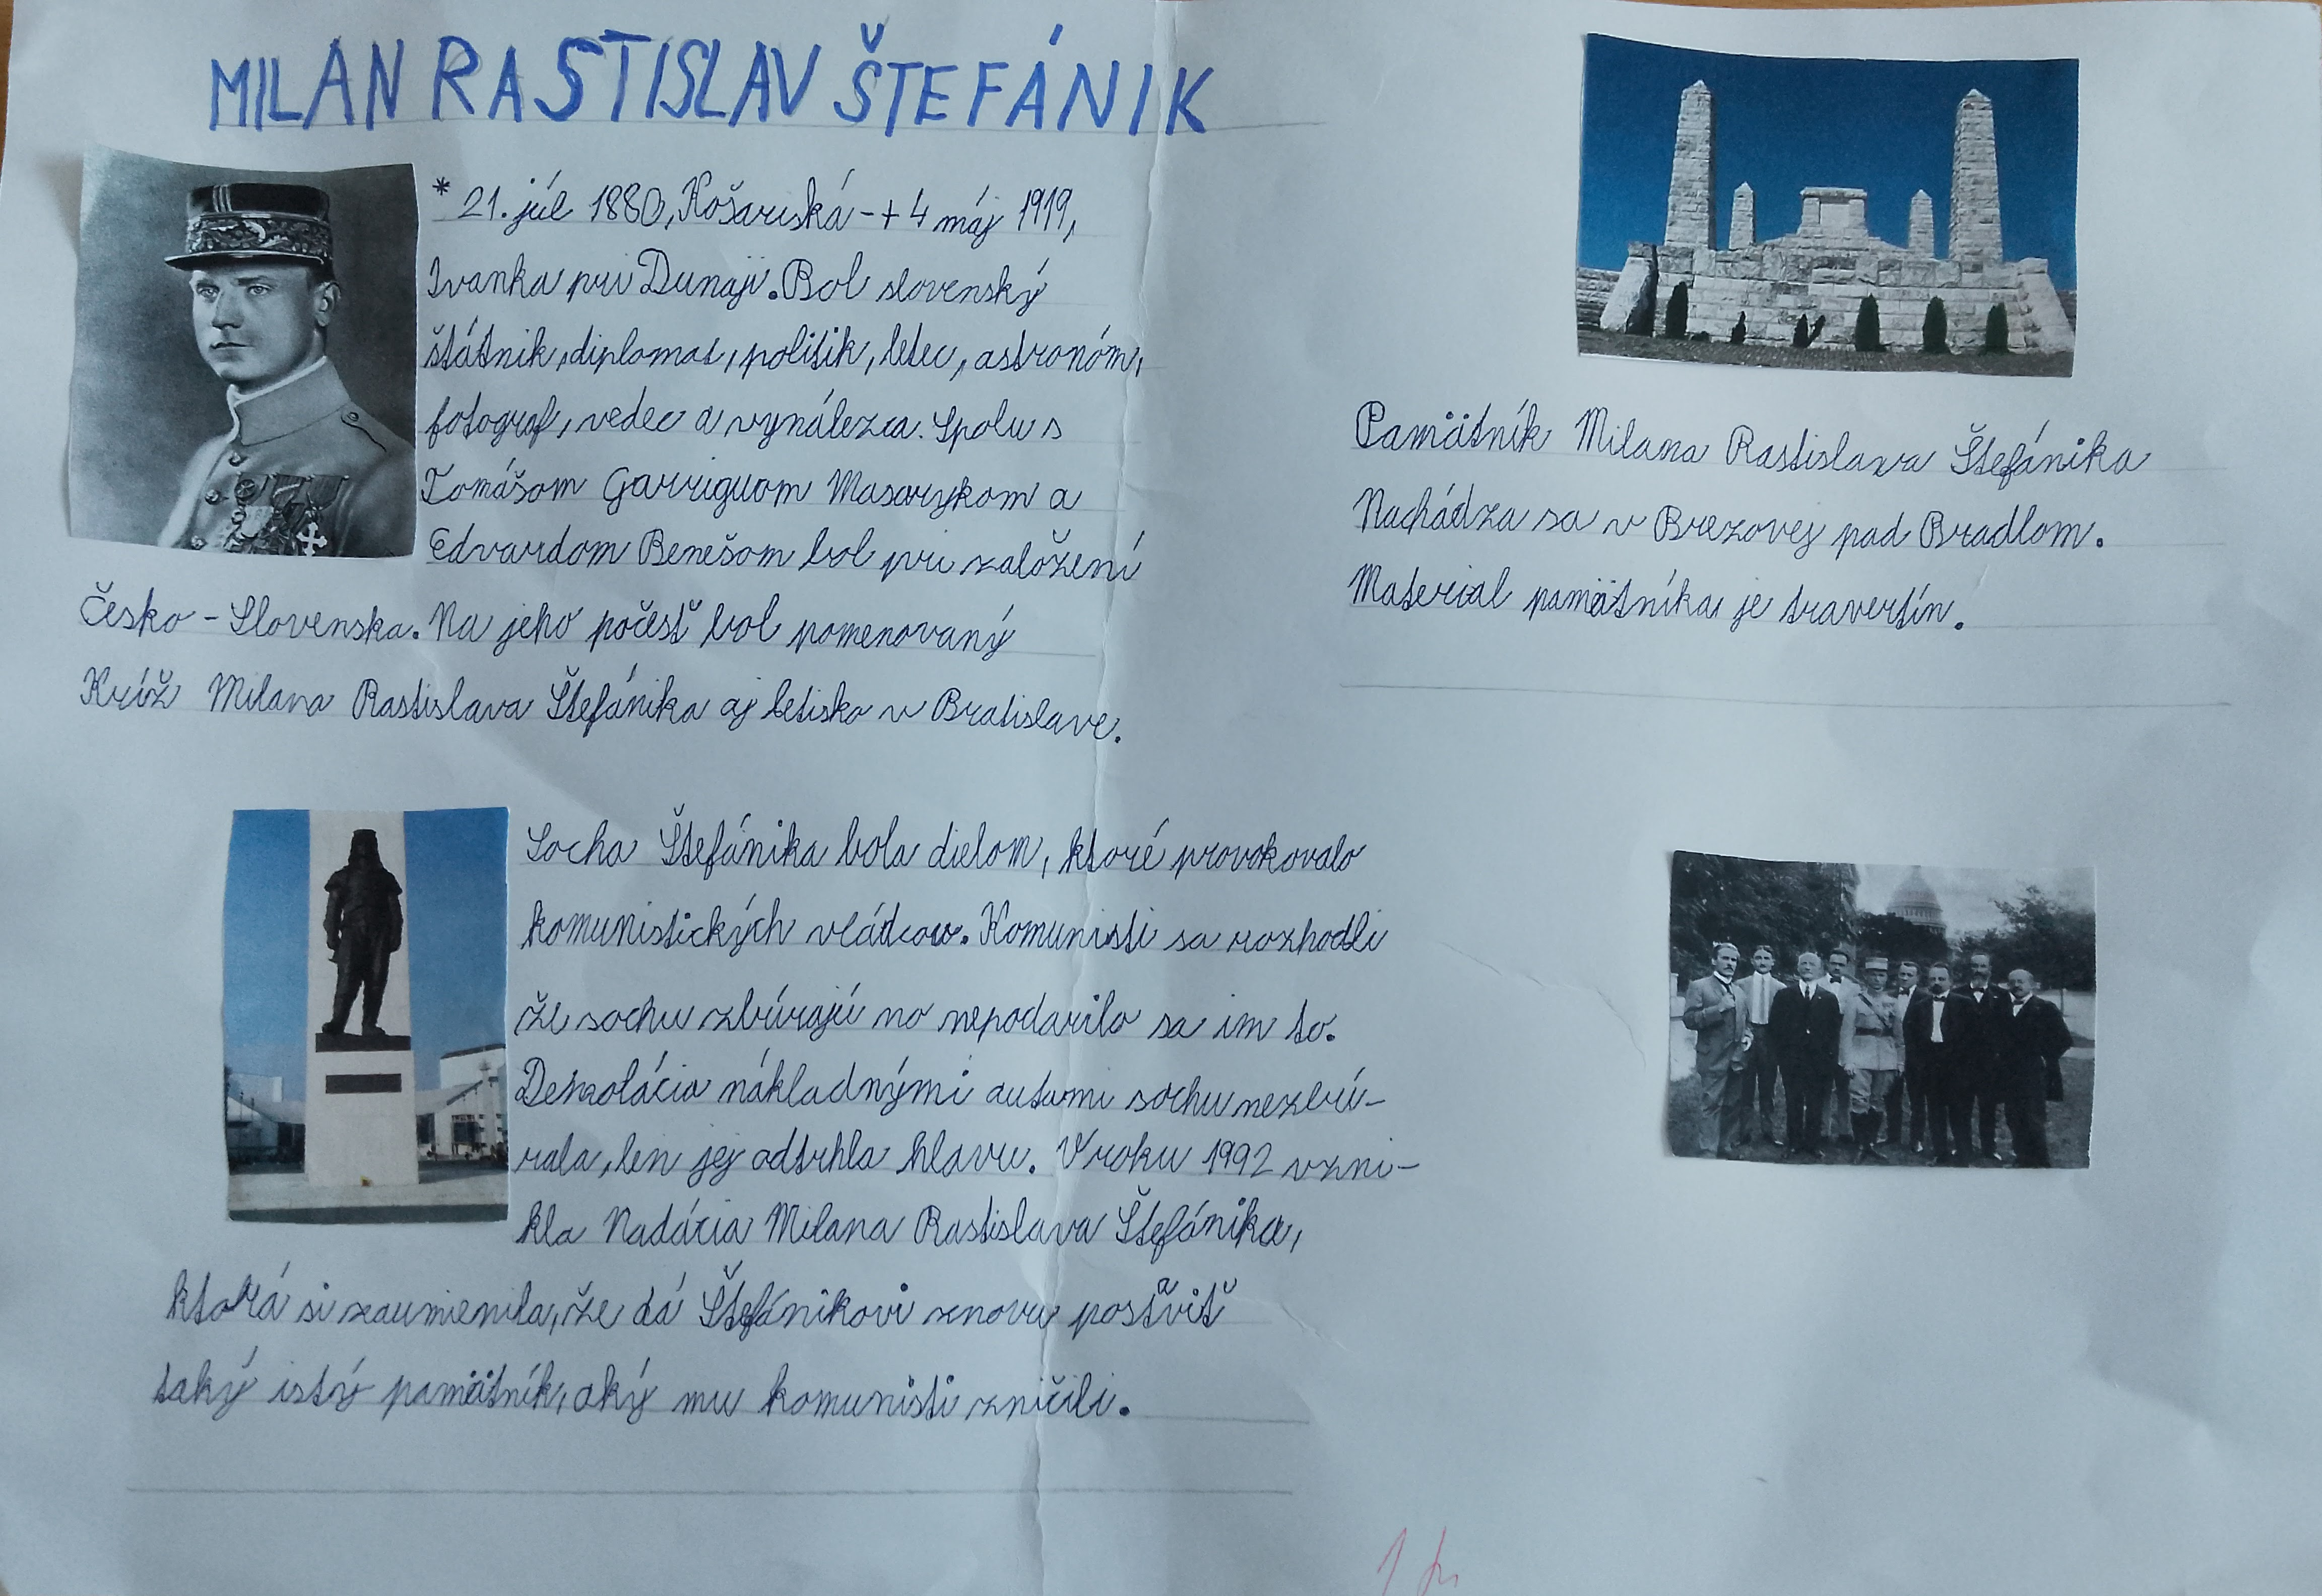 MILAN RASTISLAV ŠTEFÁNIK
* 21. júl 1880, Košariská - + 4 máj 1919,
Ivanka pri Dunaji. Bol slovenský
štátnik, diplomat, politik, letec, astronóm,
fotograf, vedec a vynálezca. Spolu s
Tomášom Garriguom Masarykom a
Edvardom Benešom bol pri založení
Česko - Slovenska. Na jeho počesť bol pomenovaný
Kríž Milana Rastislava Štefánika aj letisko v Bratislave.
Pamätník Milana Rastislava Štefánika
Nachádza sa v Brezovej pod Bradlom.
Material pamätníka je travertín.
Socha Štefánika bola dielom, ktoré provokovalo
komunistických vládcov. Komunisti sa rozhodli
že sochu zbúrajú no nepodarilo sa im to.
nákladnými autami sochu nezbú-
rala, len jej odtrhla hlavu. V roku 1992 vzni-
kla Nadácia Milana Rastislava Štefánika,
ktorá si zaumienila, že dá Štefánikovi znovu postaviť
taký istý pamätník, aký mu komunisti zničili.